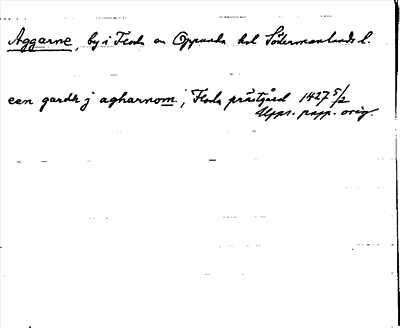 Aggarne, by i Floda sn Oppunda hd Södermanlands l.
een gardh j agharnom, Floda prästgård 1427 5/2
Upps. papp. orig.